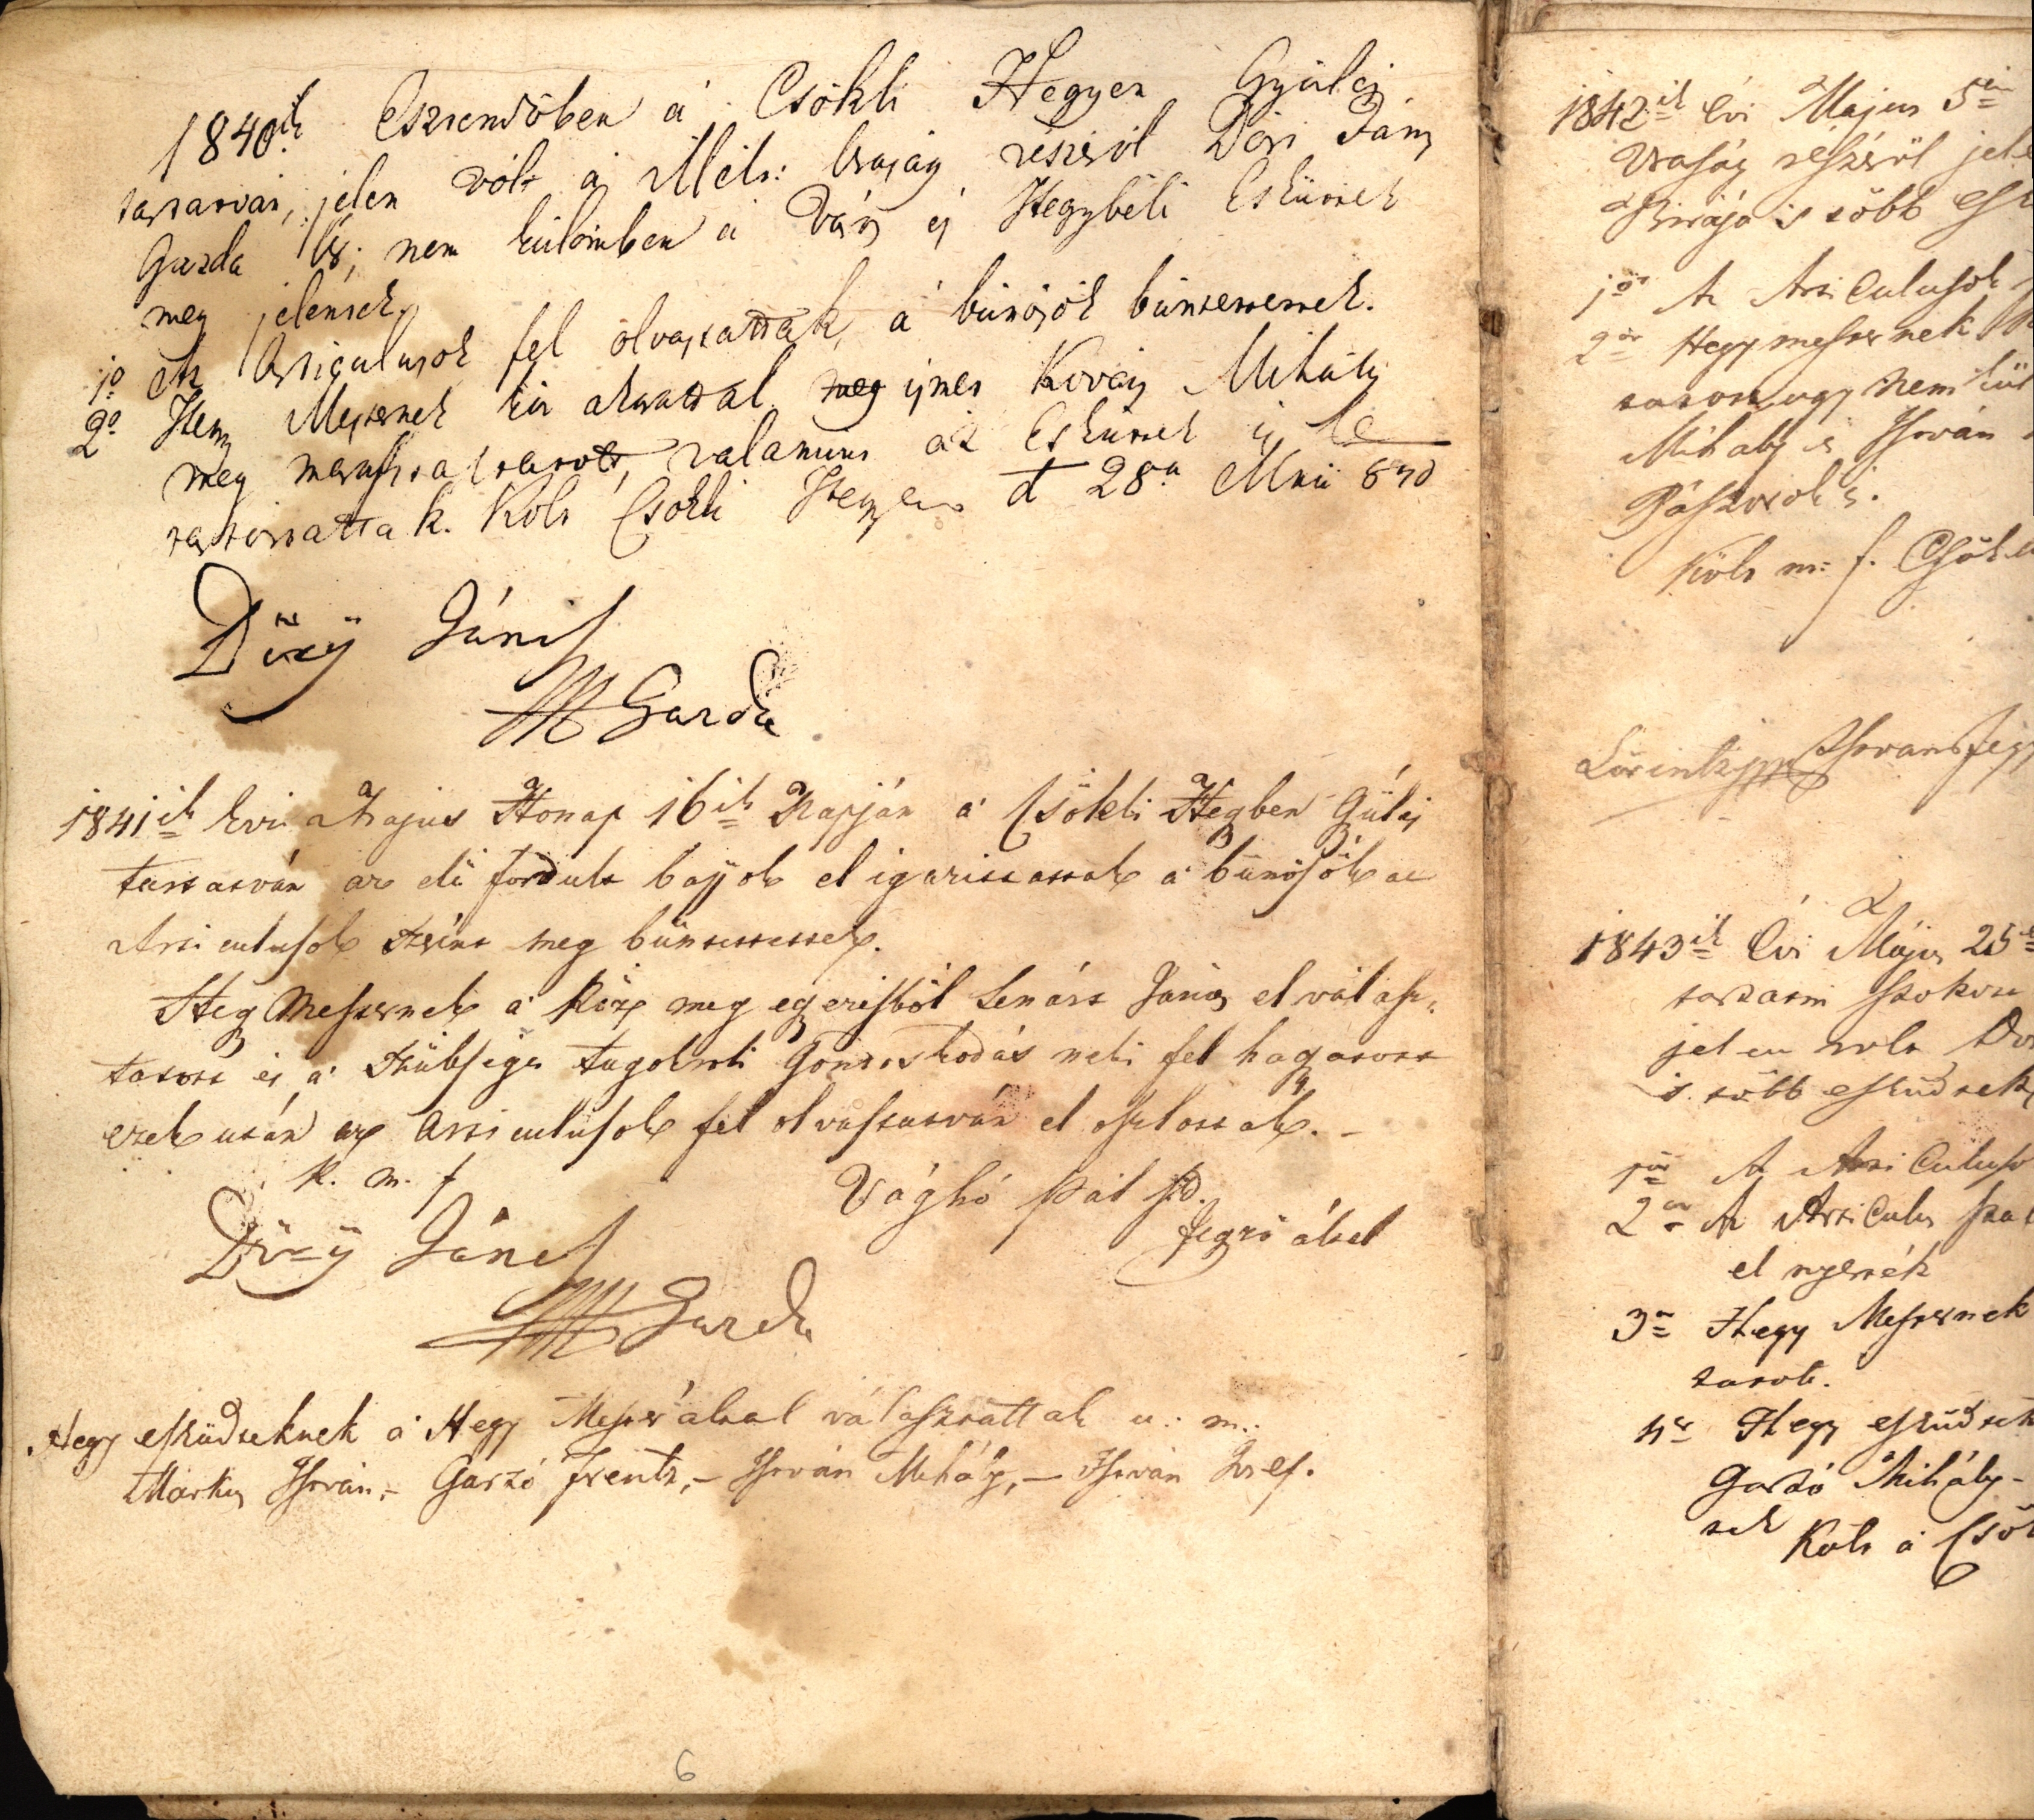 1840ik Esztendőben a Csökli Hegyen Gyülés
tartatván, jelen vólt a Mélt: Uraság részéről Dősi János
Gazda Úr; nem külömben a Város és Hegybéli Eskűttek
meg jelentek.
1o Az Articulusok fel olvastattak, a bűnösök büntettettek.
2o Hegy Mesternek köz akarattal meg ismer Kovács Mihály
meg marasztaltatott, valamint az Eskűttek is be
tartattattak. Költ Csökli Hegyen d 28a Maii 840
János
Gazda
1841ik Evi Majus Honap 16ik Napján a Csökli Hegben Gülés
tartatván az elö fordult bajok el igazittattak a bűnösök az
Articulusok szerint meg büntettettek.
Heg Mesternek a Köz meg egezésből Lenárt János el válasz„
tatott és a szükséges tagokrol Gondoskodás neki fel hagatott
ezek után az Articulusok fel olvastatván el oszlottak. –
k. m. f
Vághó Pál
jegző által
János
Gazda
Hegy esküdteknek a Hegy Mester által választattak u: m:
Markus István, – Garzó Frentz, – István Mihály, – István Josef.
6
1842ik Évi Majus 5én
Uraság részéről jele
Birája s több Esk
1ör A Articulusok
2or Hegymesternek
tatott ugy nem kül
Mihaly és István
Pásztorok is.
Költ m: f. Csök
Lörintz István Jegy
1843ik Évi Május 25
tartatni szokott
jelen volt
s több esküdtek
1ör A Articuluso
2or A Articulus
el nyerték
3or Hegy Mesternek
tatott.
4er Hegy esküdtek
Garzó Mihály –
tek
Költ a Csök